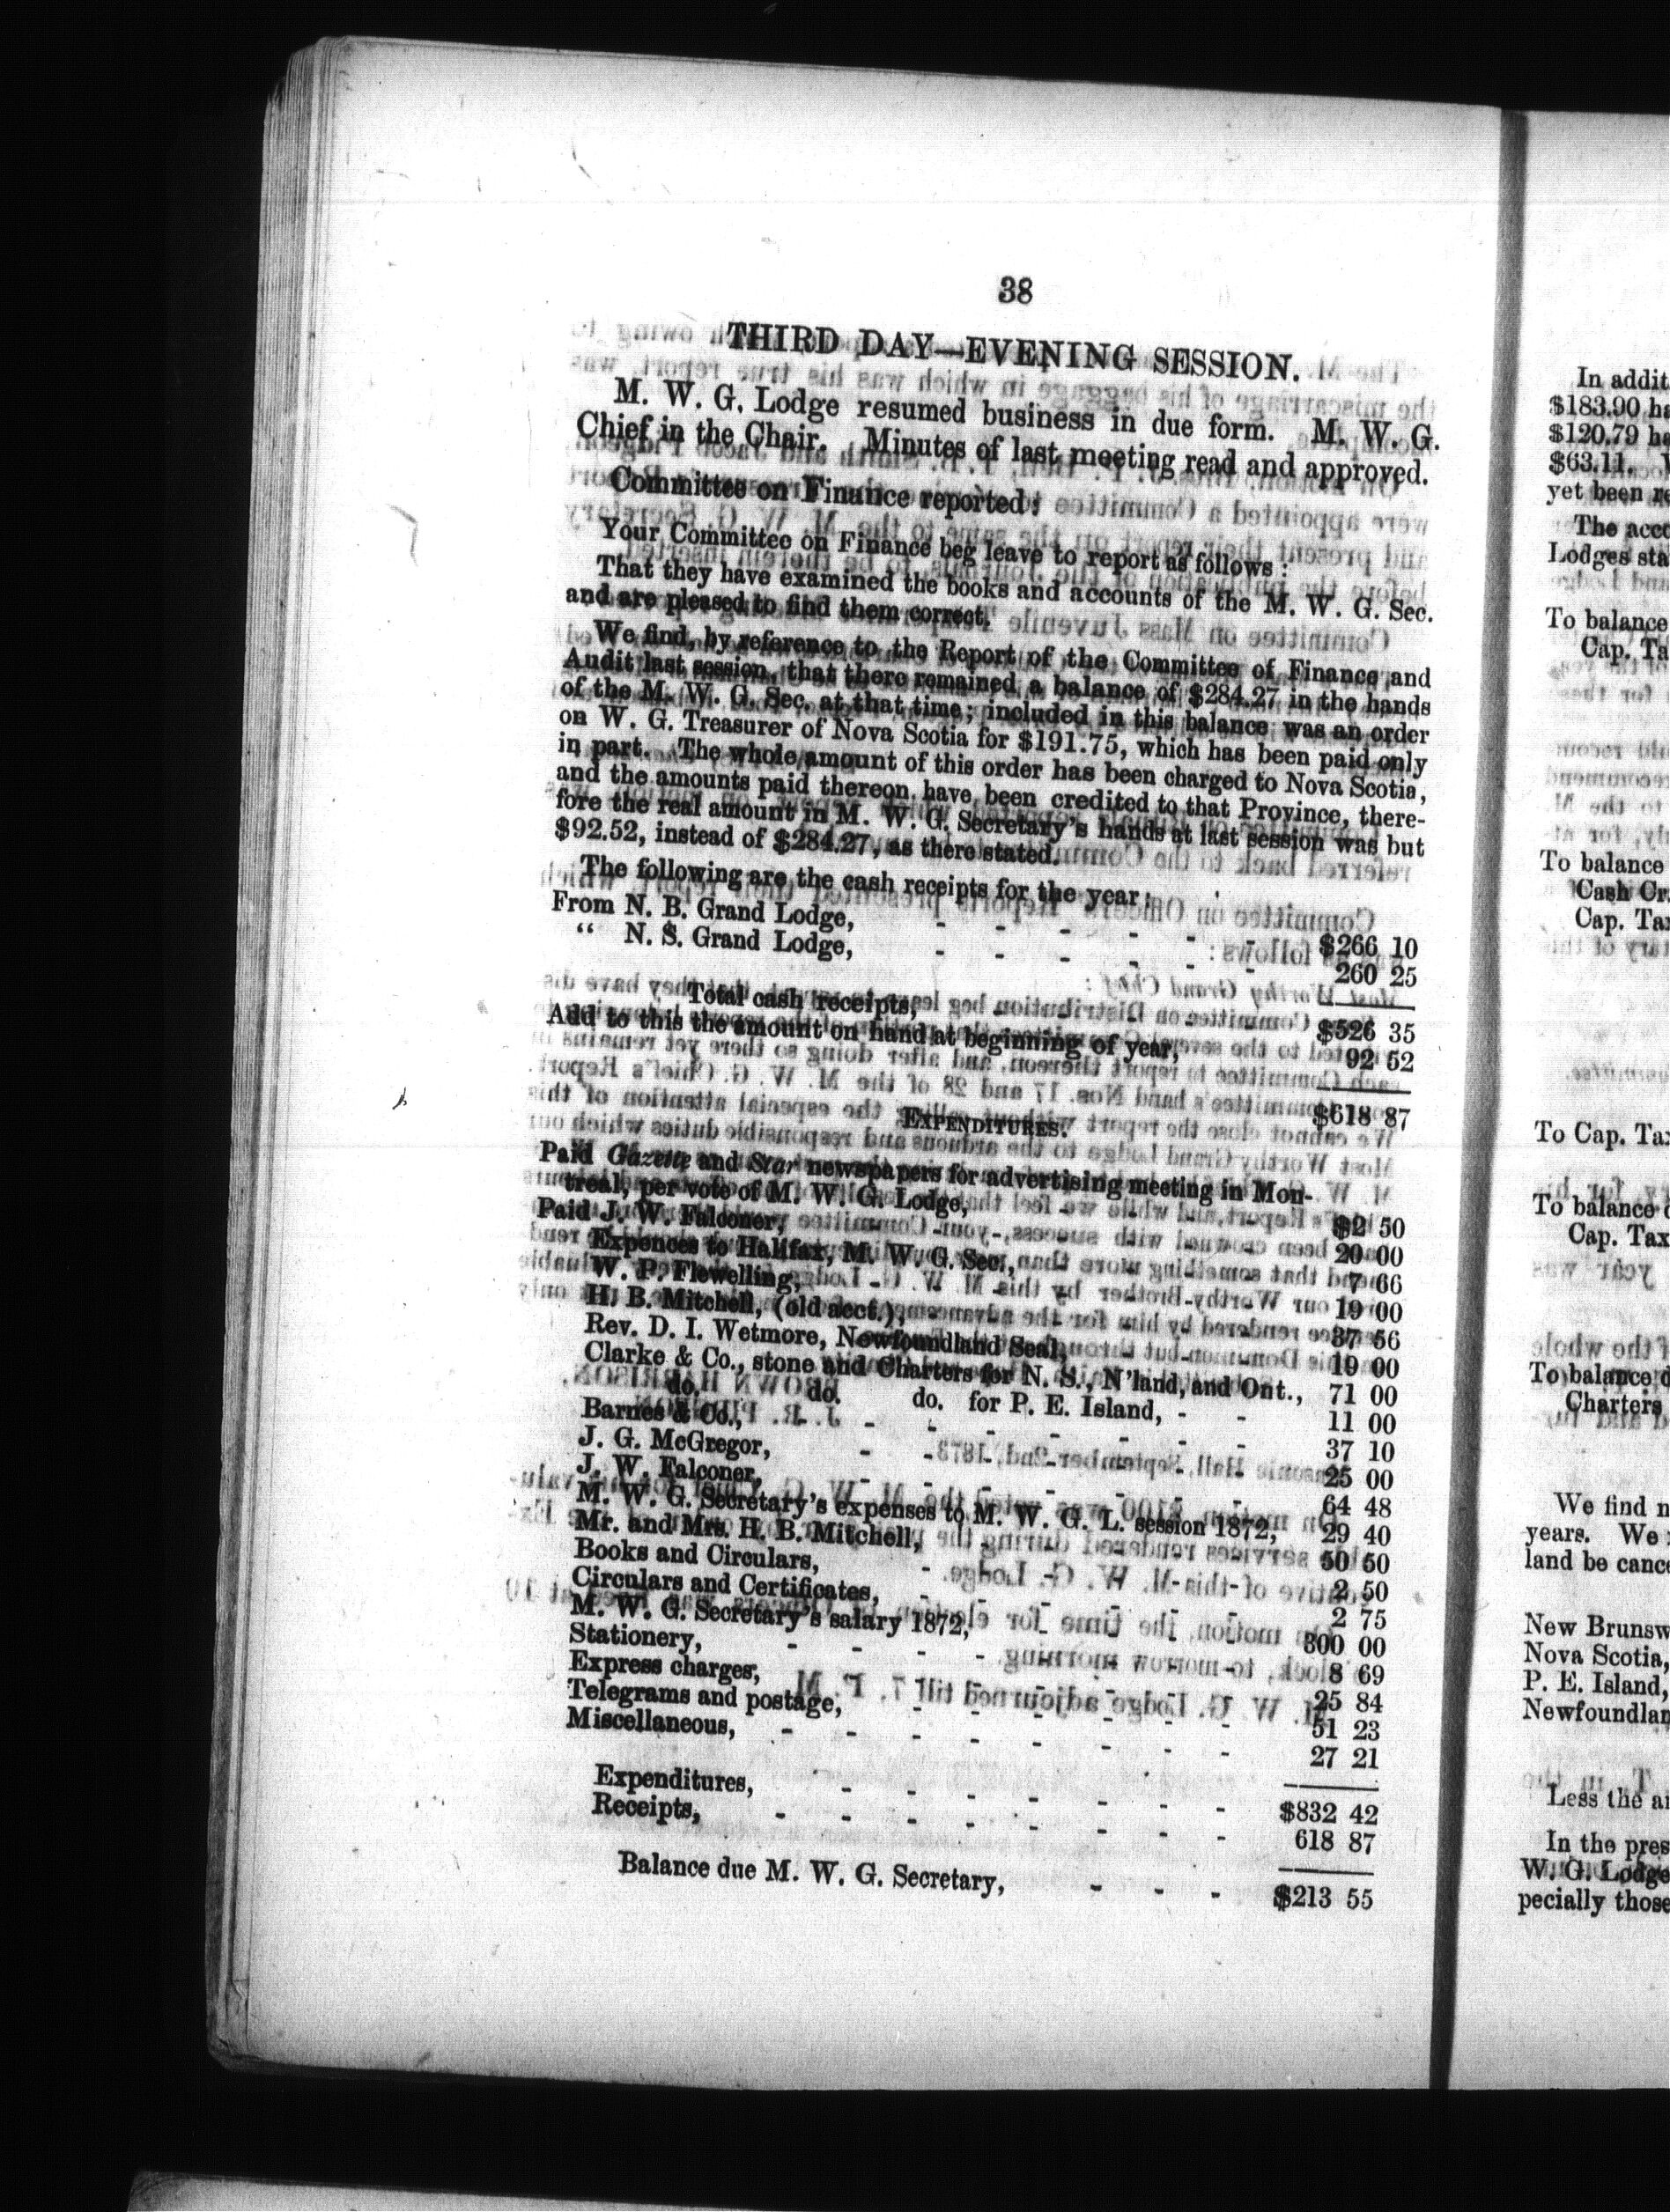 38
THIRD DAY—EVENING SESSION.
M. W. G. Lodge resumed business in due form. M. W. G.
Chief in the Chair. Minutes of last meeting read and approved.
Committee on Finance reported:
Your Committee on Finance beg leave to report as follows:
That they have examined the books and accounts of the M. W. G. Sec.
and are pleased to find them correct.
We find, by reference to the Report of the Committee of Finance and
Audit last session, that there remained a balance of $284.27 in the hands
of the M. W. G. Sec. at that time; included in this balance was an order
on W. G. Treasurer of Nova Scotia for $191.75, which has been paid only
in part. The whole amount of this order has been charged to Nova Scotia,
and the amounts paid thereon have been credited to that Province, there-
fore the real amount in M. W. G. Secretary's hands at last session was but
$92.52, instead of $284.27, as there stated.
The following are the cash receipts for the year:
From N. B. Grand Lodge, - - - - - - $266 10
" N. S. Grand Lodge, - - - - - - 260 25
Total cash receipts, $526 35
Add to this the amount on hand at beginning of year, 92 52
$618 87
EXPENDITURES.
Paid Gazette and Star newspapers for advertising meeting in Mon-
treal, per vote of M. W. G. Lodge, $2 50
Paid J. W. Falconer, 20 00
Expences to Halifax, M. W. G. Sec., 7 66
W. P. Flewelling, 19 00
H. B. Mitchell, (old acct.), 37 56
Rev. D. I. Wetmore, Newfoundland Seal, 19 00
Clarke & Co., stone and Charters for N. S., N'land, and Ont., 71 00
do. do. do. for P. E. Island, - - 11 00
Barnes & Co., - - - - - - - - 37 10
J. G. McGregor, - - - - - - - 25 00
J. W. Falconer, - - - - - - - 64 48
M. W. G. Secretary's expenses to M. W. G. L. session 1872, 29 40
Mr. and Mrs. H. B. Mitchell, 50 50
Books and Circulars, - - - - - - 2 50
Circulars and Certificates, - - - - - - 2 75
M. W. G. Secretary's salary 1872, 300 00
Stationery, - - - - - - - - 8 69
Express charges, - - - - - - - 25 84
Telegrams and postage, - - - - - - 51 23
Miscellaneous, - - - - - - - - 27 21
Expenditures, - - - - - - - $832 42
Receipts, - - - - - - - - 618 87
Balance due M. W. G. Secretary, - - - $213 55
In addit
$183.90 ha
$120.79 ha
$63.11.
yet been re
The acco
Lodges sta
To balance
Cap. Ta
To balance
Cash Cr.
Cap. Tax
To Cap. Tax
To balance
Cap. Tax
To balance d
Charters
We find n
years. We
land be cance
New Brunsw
Nova Scotia,
P. E. Island,
Newfoundlan
Less the a
In the pres
W. G. Lodge
pecially those